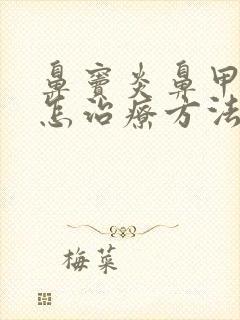 鼻窦炎鼻甲
怎治療方法
梅菜